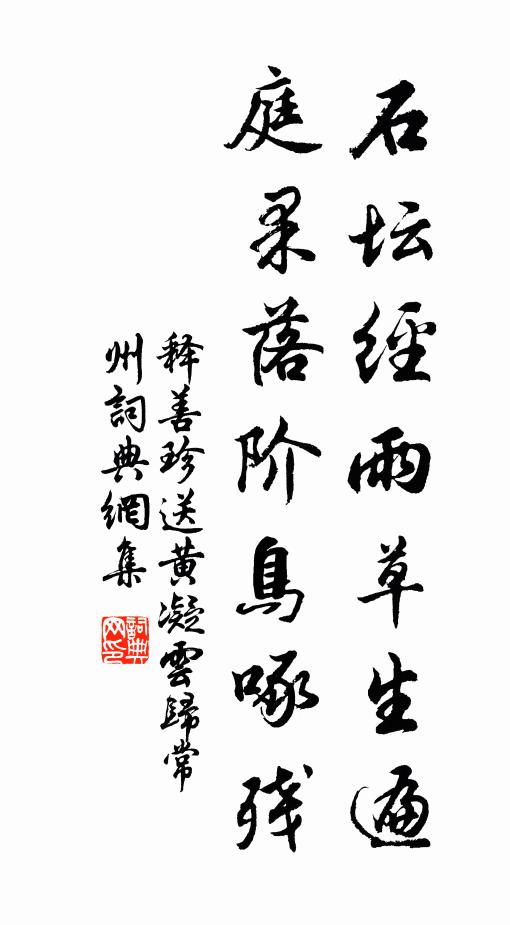 石坛經雨草生遍
庭果落阶鳥啄残
释善珍送黄凝雲歸常
州詞典網集
詞典网印